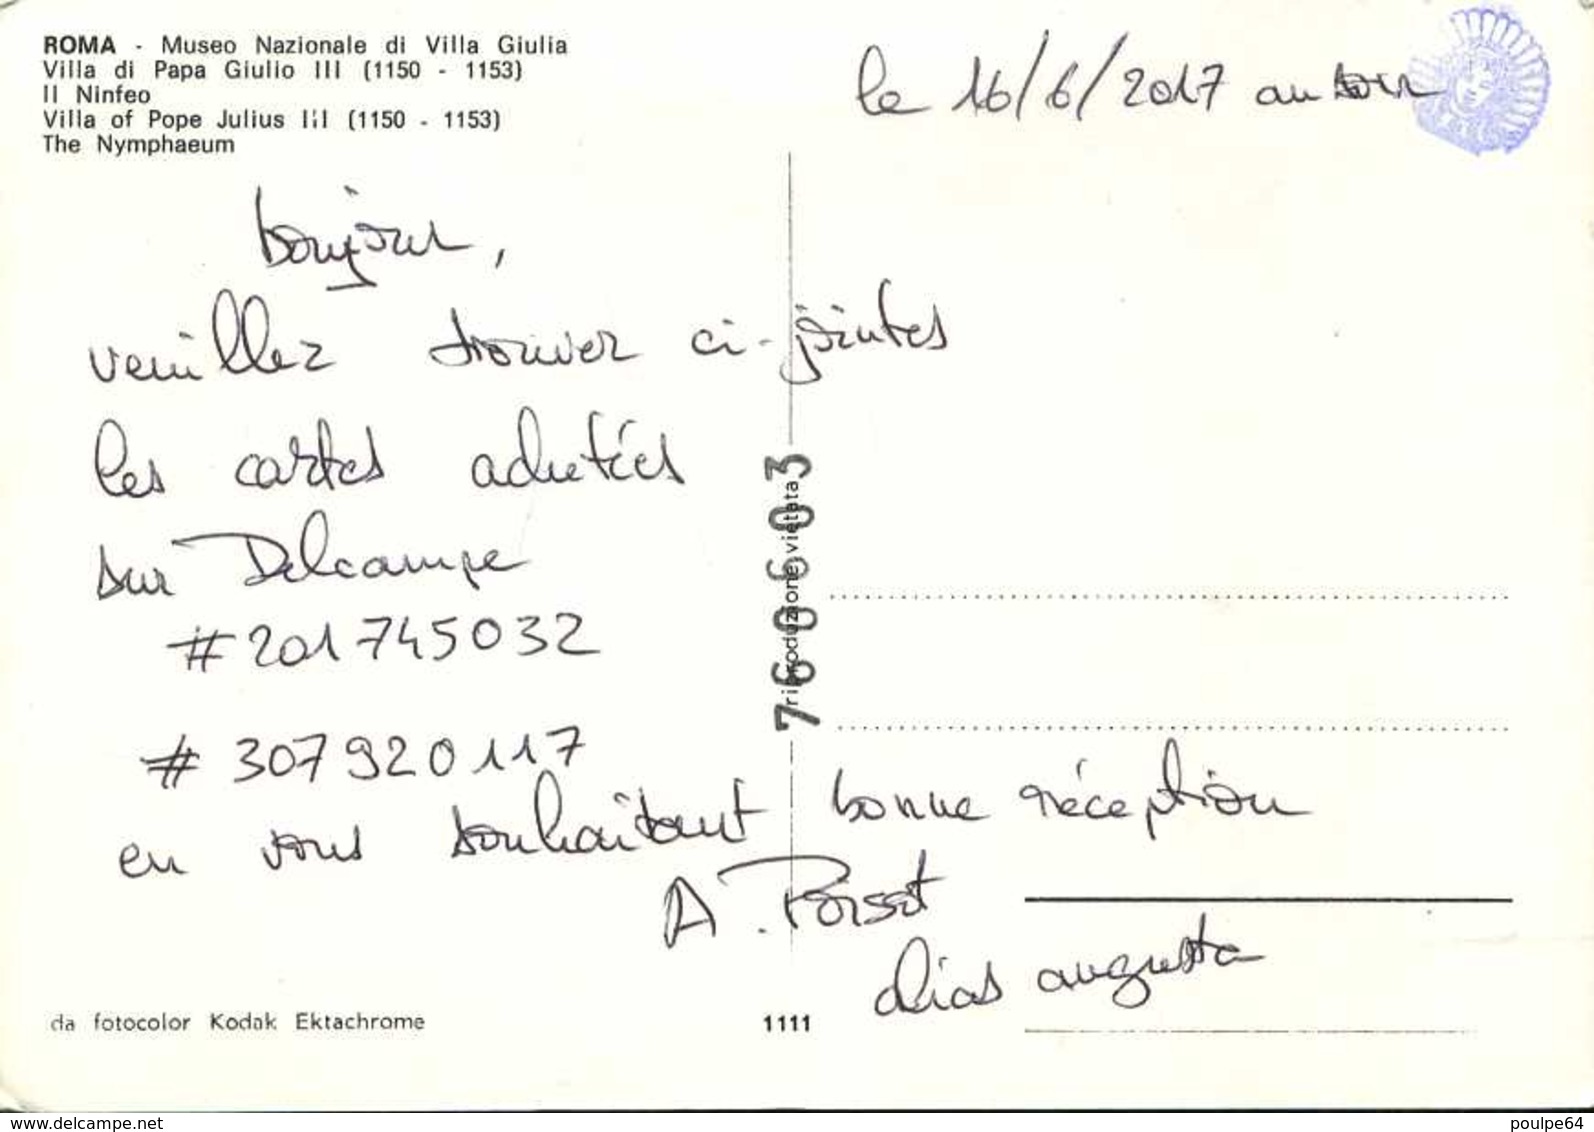 ROMA - Museo Nazionale di Villa Giulia
Villa di Papa Giulio III (1150 - 1153)
Il Ninfeo
Villa of Pope Julius III (1150 - 1153)
The Nymphaeum
le 16/6/2017 au soir
bonjour,
veuillez trouver ci-jointes
les cartes achetées
sur Delcampe
#201745032
# 307920117
en vous souhaitant bonne réception
A. Poissot
alias augusta
760603
riproduzione vietata
da fotocolor Kodak Ektachrome
1111
www.delcampe.net
poulpe64